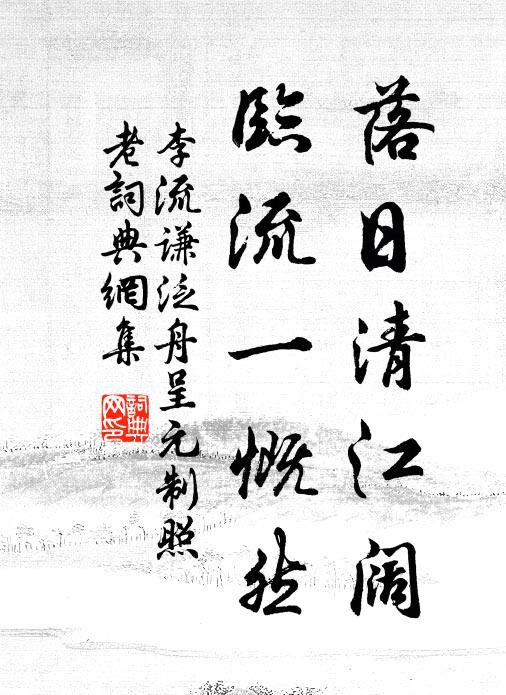 落日清江阔
臨流一慨然
李流谦泛舟呈元制照
老詞典網集
詞典
网印